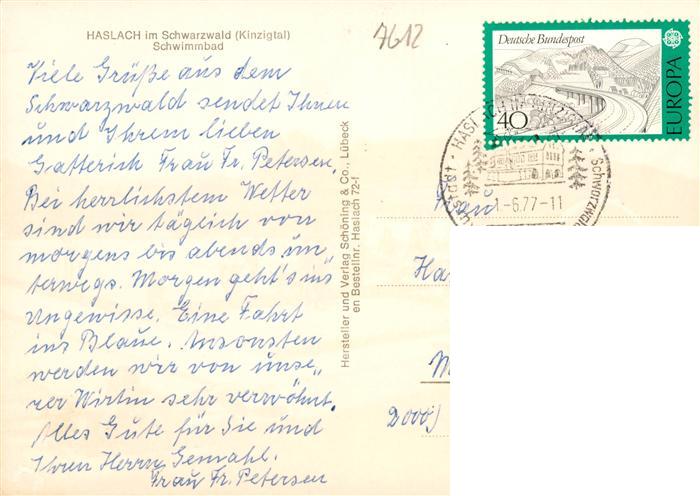 HASLACH im Schwarzwald (Kinzigtal)
Schwimmbad
7612
Viele Grüße aus dem
Schwarzwald sendet Ihnen
und Ihrem lieben
Gatterich Frau Fr. Petersen.
Bei herrlichstem Wetter
sind wir täglich von
morgens bis abends un„
terwegs. Morgen geht's ins
Ungewisse. Eine Fahrt
ins Blaue. Ansonsten
werden wir von unse„
rer Wirtin sehr verwöhnt.
Alles Gute für Sie und
Ihren Herrn Gemahl.
Frau Fr. Petersen
Hersteller und Verlag Schöning & Co., Lübeck
en Bestellnr. Haslach 72-f
Deutsche Bundespost
40
EUROPA
1-6.77-11
Frau
Ha
2000